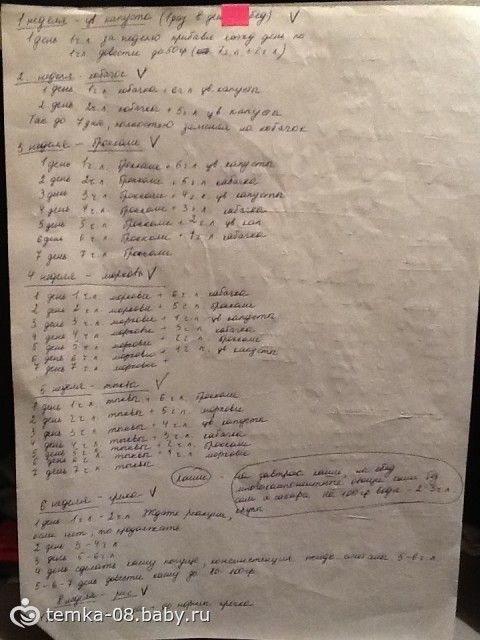 1 неделя - цв капуста (1 раз в день обед)
1 день 1 ч.л. за неделю прибавл кажд день по
1 ч.л. довести до 50 гр
2 неделя - кабачок
1 день 1 ч.л. кабачка + 6 ч л цв. капусты
2 день 2 ч.л. кабачка + 5 ч л. капусты
Так до 7 дня, полностью заменяя на кабачок
3 неделя - брокколи
1 день 1 ч. брокколи + 6 ч л. цв капусты
2 день 2 ч. брокколи + 5 ч л кабачка
3 день 3 ч брокколи + 4 ч л цв капусты
4 день 4 ч. брокколи + 3 ч л. кабачка
5 день 5 ч. брокколи + 2 ч л цв кап
6 день 6 ч. брокколи + 1 ч л. кабачка
7 день 7 ч. брокколи
4 неделя - морковь
1 день 1 ч.л. моркови + 6 ч л. кабачка
2 день 2 ч л. моркови + 5 ч л. брокколи
3 день 3 ч л. моркови + 4 ч л цв капусты
4 день 4 ч л. моркови + 3 ч л. кабачка
5 день 5 ч л. моркови + 2 ч л. брокколи
6 день 6 ч л. моркови + 1 ч л цв капусты
7 день 7 ч л. моркови
5 неделя - тыква
1 день 1 ч л. тыквы + 6 ч л. брокколи
2 день 2 ч л. тыквы + 5 ч л. моркови
3 день 3 ч л тыквы + 4 ч л цв капусты
4 день 4 ч л тыквы + 3 ч л кабачка
5 день 5 ч л тыквы + 2 ч л брокколи
6 день 6 ч л тыквы + 1 ч л моркови
7 день 7 ч л тыквы
каши - на завтрак каши, на обед
многокомпонентные овощи каши без
соли и сахара на 100 гр воды - 2-3 ч л
6 неделя - греча
1 день 1 ч л - 2 ч л. Ждать реакции,
если нет, то продолжать
2 день 3-4 ч л
3 день 5-6 ч л
4 день сделать кашу погуще, консистенция жидк сметаны 5-6 ч л
5-6-7 день довести кашу до гр
неделя - рис
гречка
temka-08.baby.ru